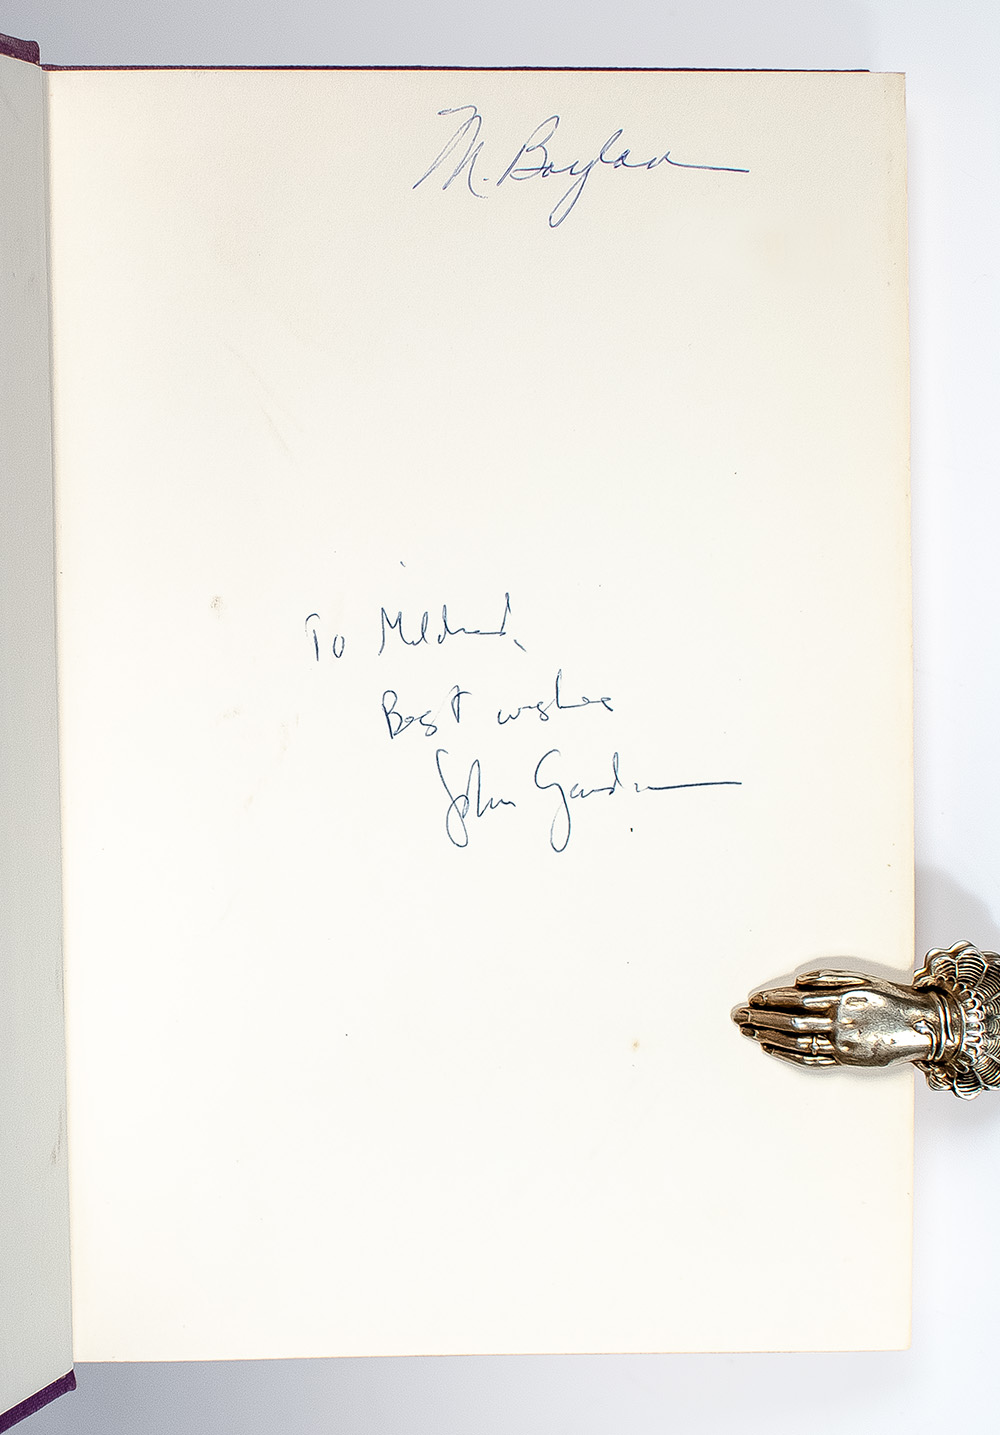 M. Boylan
To Mildred,
Best wishes
John Gardner